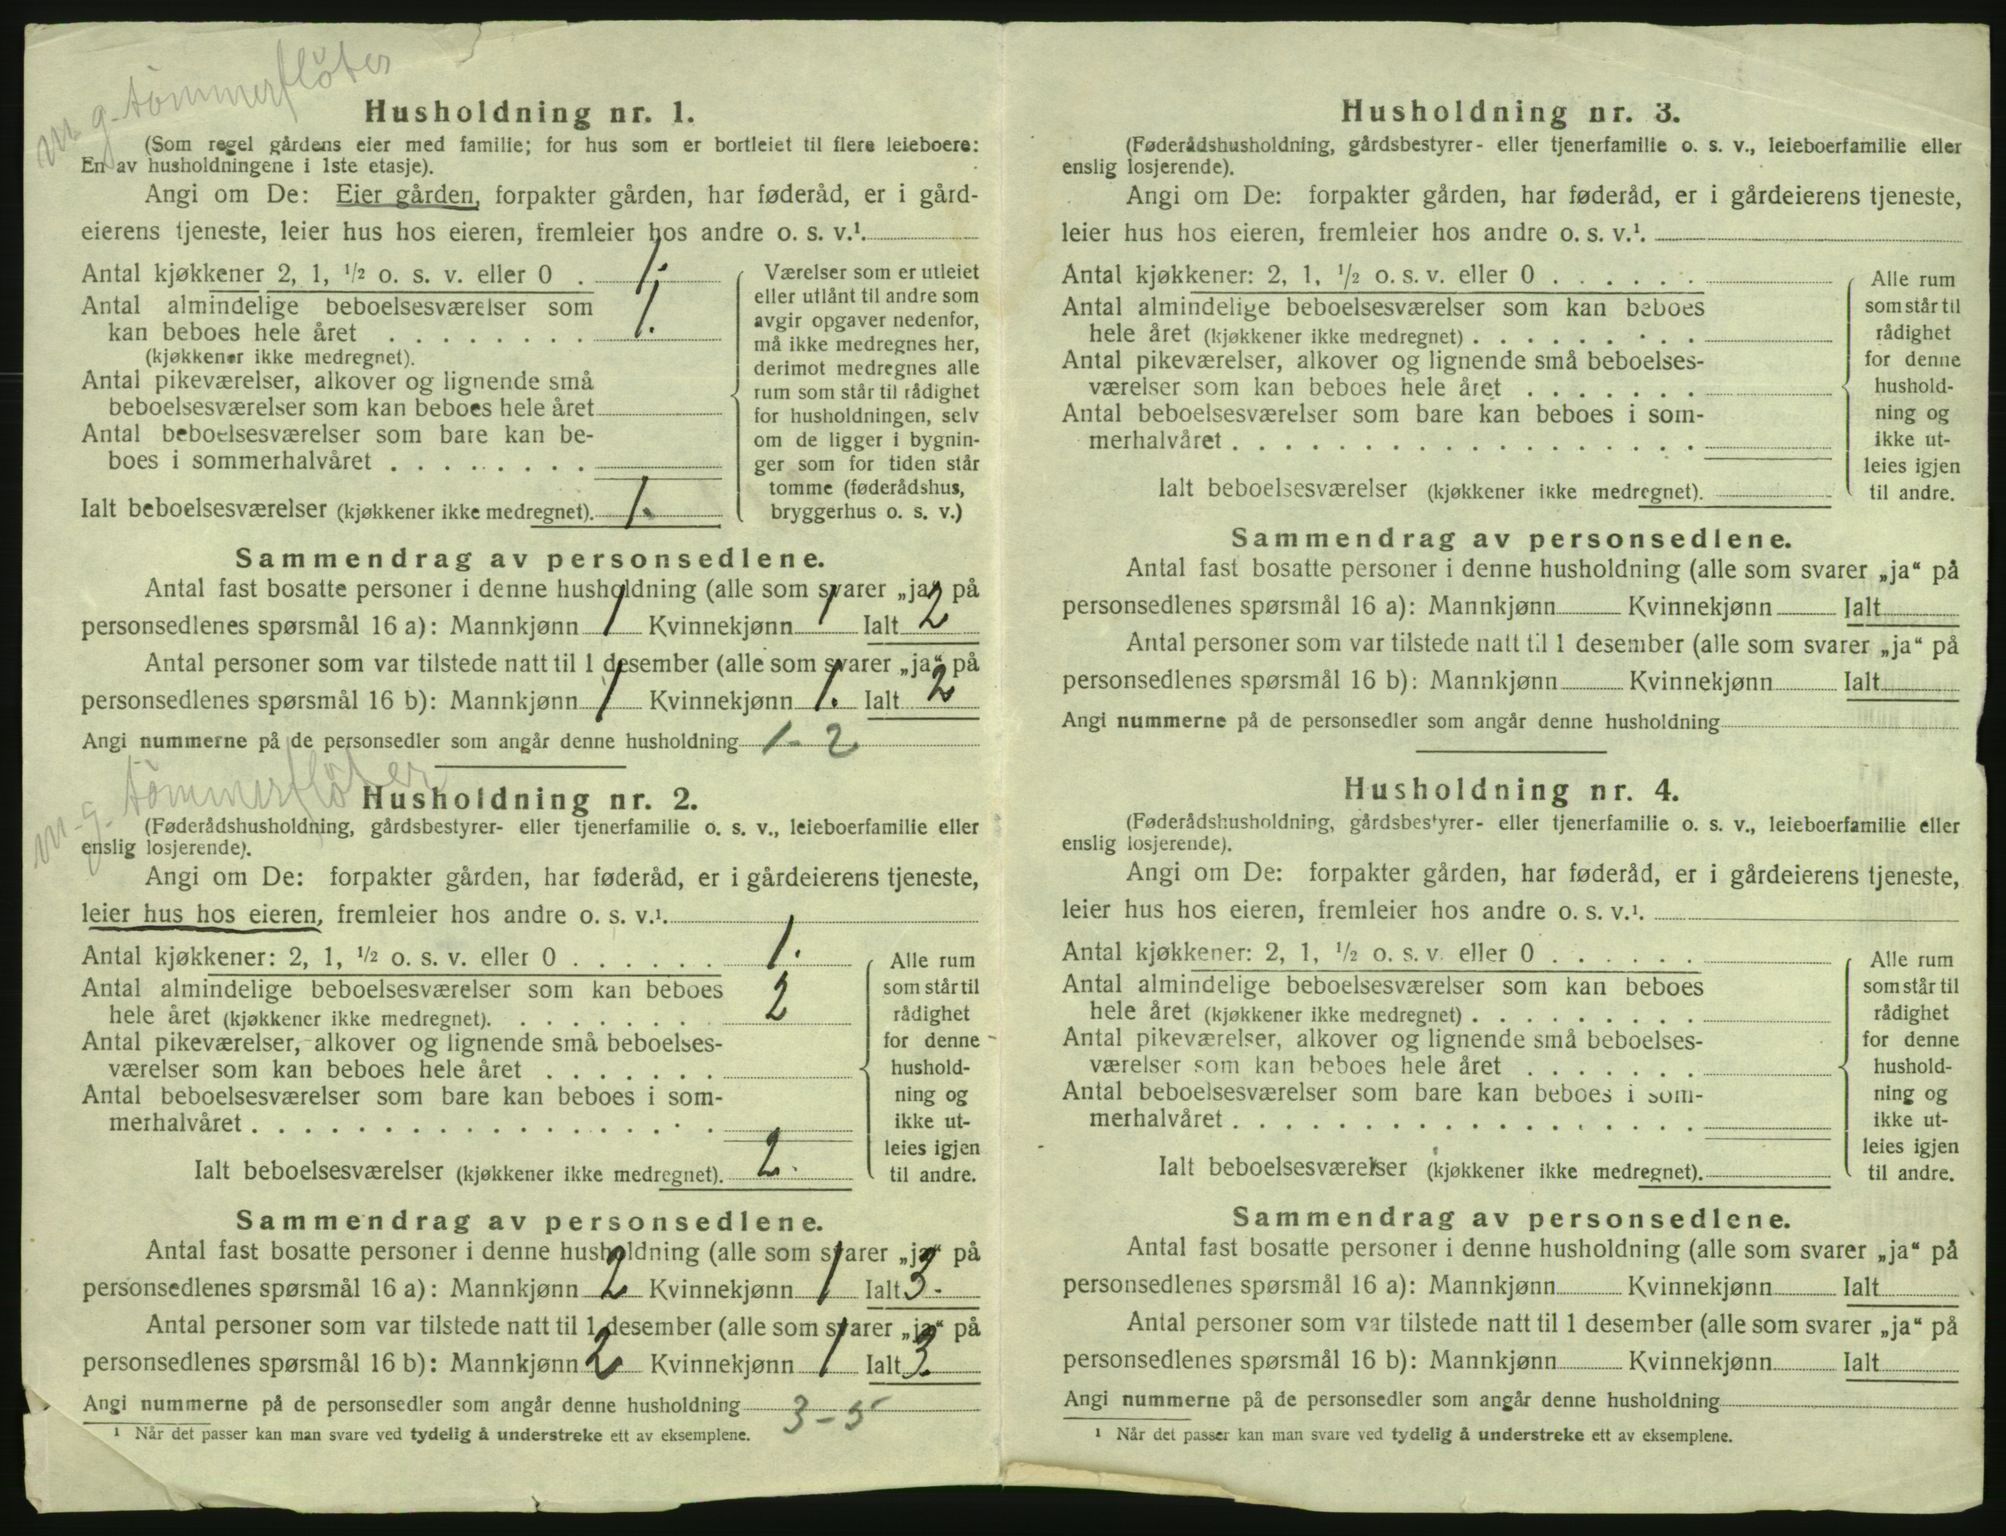 m. g. tömmerflöter
Husholdning nr. 1.
(Som regel gårdens eier med familie; for hus som er bortleiet til flere leieboere:
En av husholdningene i 1ste etasje).
Angi om De: Eier gården, forpakter gården, har føderåd, er i gård-
eierens tjeneste, leier hus hos eieren, fremleier hos andre o. s. v.¹.
Antal kjøkkener 2, 1, ½ o. s. v. eller 0 . 1.
Antal almindelige beboelsesværelser som
kan beboes hele året . . . . . . . . 1.
(kjøkkener ikke medregnet).
Antal pikeværelser, alkover og lignende små
beboelsesværelser som kan beboes hele året
Antal beboelsesværelser som bare kan be-
boes i sommerhalvåret . . . . . . . .
Ialt beboelsesværelser (kjøkkener ikke medregnet). 1.
Værelser som er utleiet
eller utlånt til andre som
avgir opgaver nedenfor,
må ikke medregnes her,
derimot medregnes alle
rum som står til rådighet
for husholdningen, selv
om de ligger i bygnin-
ger som for tiden står
tomme (føderådshus,
bryggerhus o. s. v.)
Sammendrag av personsedlene.
Antal fast bosatte personer i denne husholdning (alle som svarer „ja“ på
personsedlenes spørsmål 16 a): Mannkjønn 1 Kvinnekjønn 1. Ialt 2
Antal personer som var tilstede natt til 1 desember (alle som svarer „ja“ på
personsedlenes spørsmål 16 b): Mannkjønn 1 Kvinnekjønn 1. Ialt 2
Angi nummerne på de personsedler som angår denne husholdning 1-2
m. g. tömmerflöter
Husholdning nr. 2.
(Føderådshusholdning, gårdsbestyrer- eller tjenerfamilie o. s. v., leieboerfamilie eller
enslig losjerende).
Angi om De: forpakter gården, har føderåd, er i gårdeierens tjeneste,
leier hus hos eieren, fremleier hos andre o. s. v.¹.
Antal kjøkkener: 2, 1, ½ o. s. v. eller 0 . . . . . . 1.
Antal almindelige beboelsesværelser som kan beboes
hele året (kjøkkener ikke medregnet). . . . . . . . . 2
Antal pikeværelser, alkover og lignende små beboelses-
værelser som kan beboes hele året . . . . . . .
Antal beboelsesværelser som bare kan beboes i som-
merhalvåret . . . . . . . . . . . . . . . . . .
Ialt beboelsesværelser (kjøkkener ikke medregnet). 2.
Alle rum
som står til
rådighet
for denne
hushold-
ning og
ikke ut-
leies igjen
til andre.
Sammendrag av personsedlene.
Antal fast bosatte personer i denne husholdning (alle som svarer „ja“ på
personsedlenes spørsmål 16 a): Mannkjønn 2 Kvinnekjønn 1 Ialt 3.
Antal personer som var tilstede natt til 1 desember (alle som svarer „ja“ på
personsedlenes spørsmål 16 b): Mannkjønn 2 Kvinnekjønn 1 Ialt 3.
Angi nummerne på de personsedler som angår denne husholdning 3-5
¹ Når det passer kan man svare ved tydelig å understreke ett av eksemplene.
Husholdning nr. 3.
(Føderådshusholdning, gårdsbestyrer- eller tjenerfamilie o. s. v., leieboerfamilie eller
enslig losjerende).
Angi om De: forpakter gården, har føderåd, er i gårdeierens tjeneste,
leier hus hos eieren, fremleier hos andre o. s. v.¹.
Antal kjøkkener: 2, 1, ½ o. s. v. eller 0 . . . . . .
Antal almindelige beboelsesværelser som kan beboes
hele året (kjøkkener ikke medregnet) . . . . . . . . .
Antal pikeværelser, alkover og lignende små beboelses-
værelser som kan beboes hele året . . . . . . .
Antal beboelsesværelser som bare kan beboes i som-
merhalvåret . . . . . . . . . . . . . . . . . .
Ialt beboelsesværelser (kjøkkener ikke medregnet).
Alle rum
som står til
rådighet
for denne
hushold-
ning og
ikke ut-
leies igjen
til andre.
Sammendrag av personsedlene.
Antal fast bosatte personer i denne husholdning (alle som svarer „ja“ på
personsedlenes spørsmål 16 a): Mannkjønn Kvinnekjønn Ialt
Antal personer som var tilstede natt til 1 desember (alle som svarer „ja“ på
personsedlenes spørsmål 16 b): Mannkjønn Kvinnekjønn Ialt
Angi nummerne på de personsedler som angår denne husholdning
Husholdning nr. 4.
(Føderådshusholdning, gårdsbestyrer- eller tjenerfamilie o. s. v., leieboerfamilie eller
enslig losjerende).
Angi om De: forpakter gården, har føderåd, er i gårdeierens tjeneste,
leier hus hos eieren, fremleier hos andre o. s. v.¹.
Antal kjøkkener: 2, 1, ½ o. s. v. eller 0 . . . . . .
Antal almindelige beboelsesværelser som kan beboes
hele året (kjøkkener ikke medregnet) . . . . . . . . .
Antal pikeværelser, alkover og lignende små beboelses-
værelser som kan beboes hele året . . . . . . .
Antal beboelsesværelser som bare kan beboes i som-
merhalvåret . . . . . . . . . . . . . . . . . .
Ialt beboelsesværelser (kjøkkener ikke medregnet).
Alle rum
som står til
rådighet
for denne
hushold-
ning og
ikke ut-
leies igjen
til andre.
Sammendrag av personsedlene.
Antal fast bosatte personer i denne husholdning (alle som svarer „ja“ på
personsedlenes spørsmål 16 a): Mannkjønn Kvinnekjønn Ialt
Antal personer som var tilstede natt til 1 desember (alle som svarer „ja“ på
personsedlenes spørsmål 16 b): Mannkjønn Kvinnekjønn Ialt
Angi nummerne på de personsedler som angår denne husholdning
¹ Når det passer kan man svare ved tydelig å understreke ett av eksemplene.